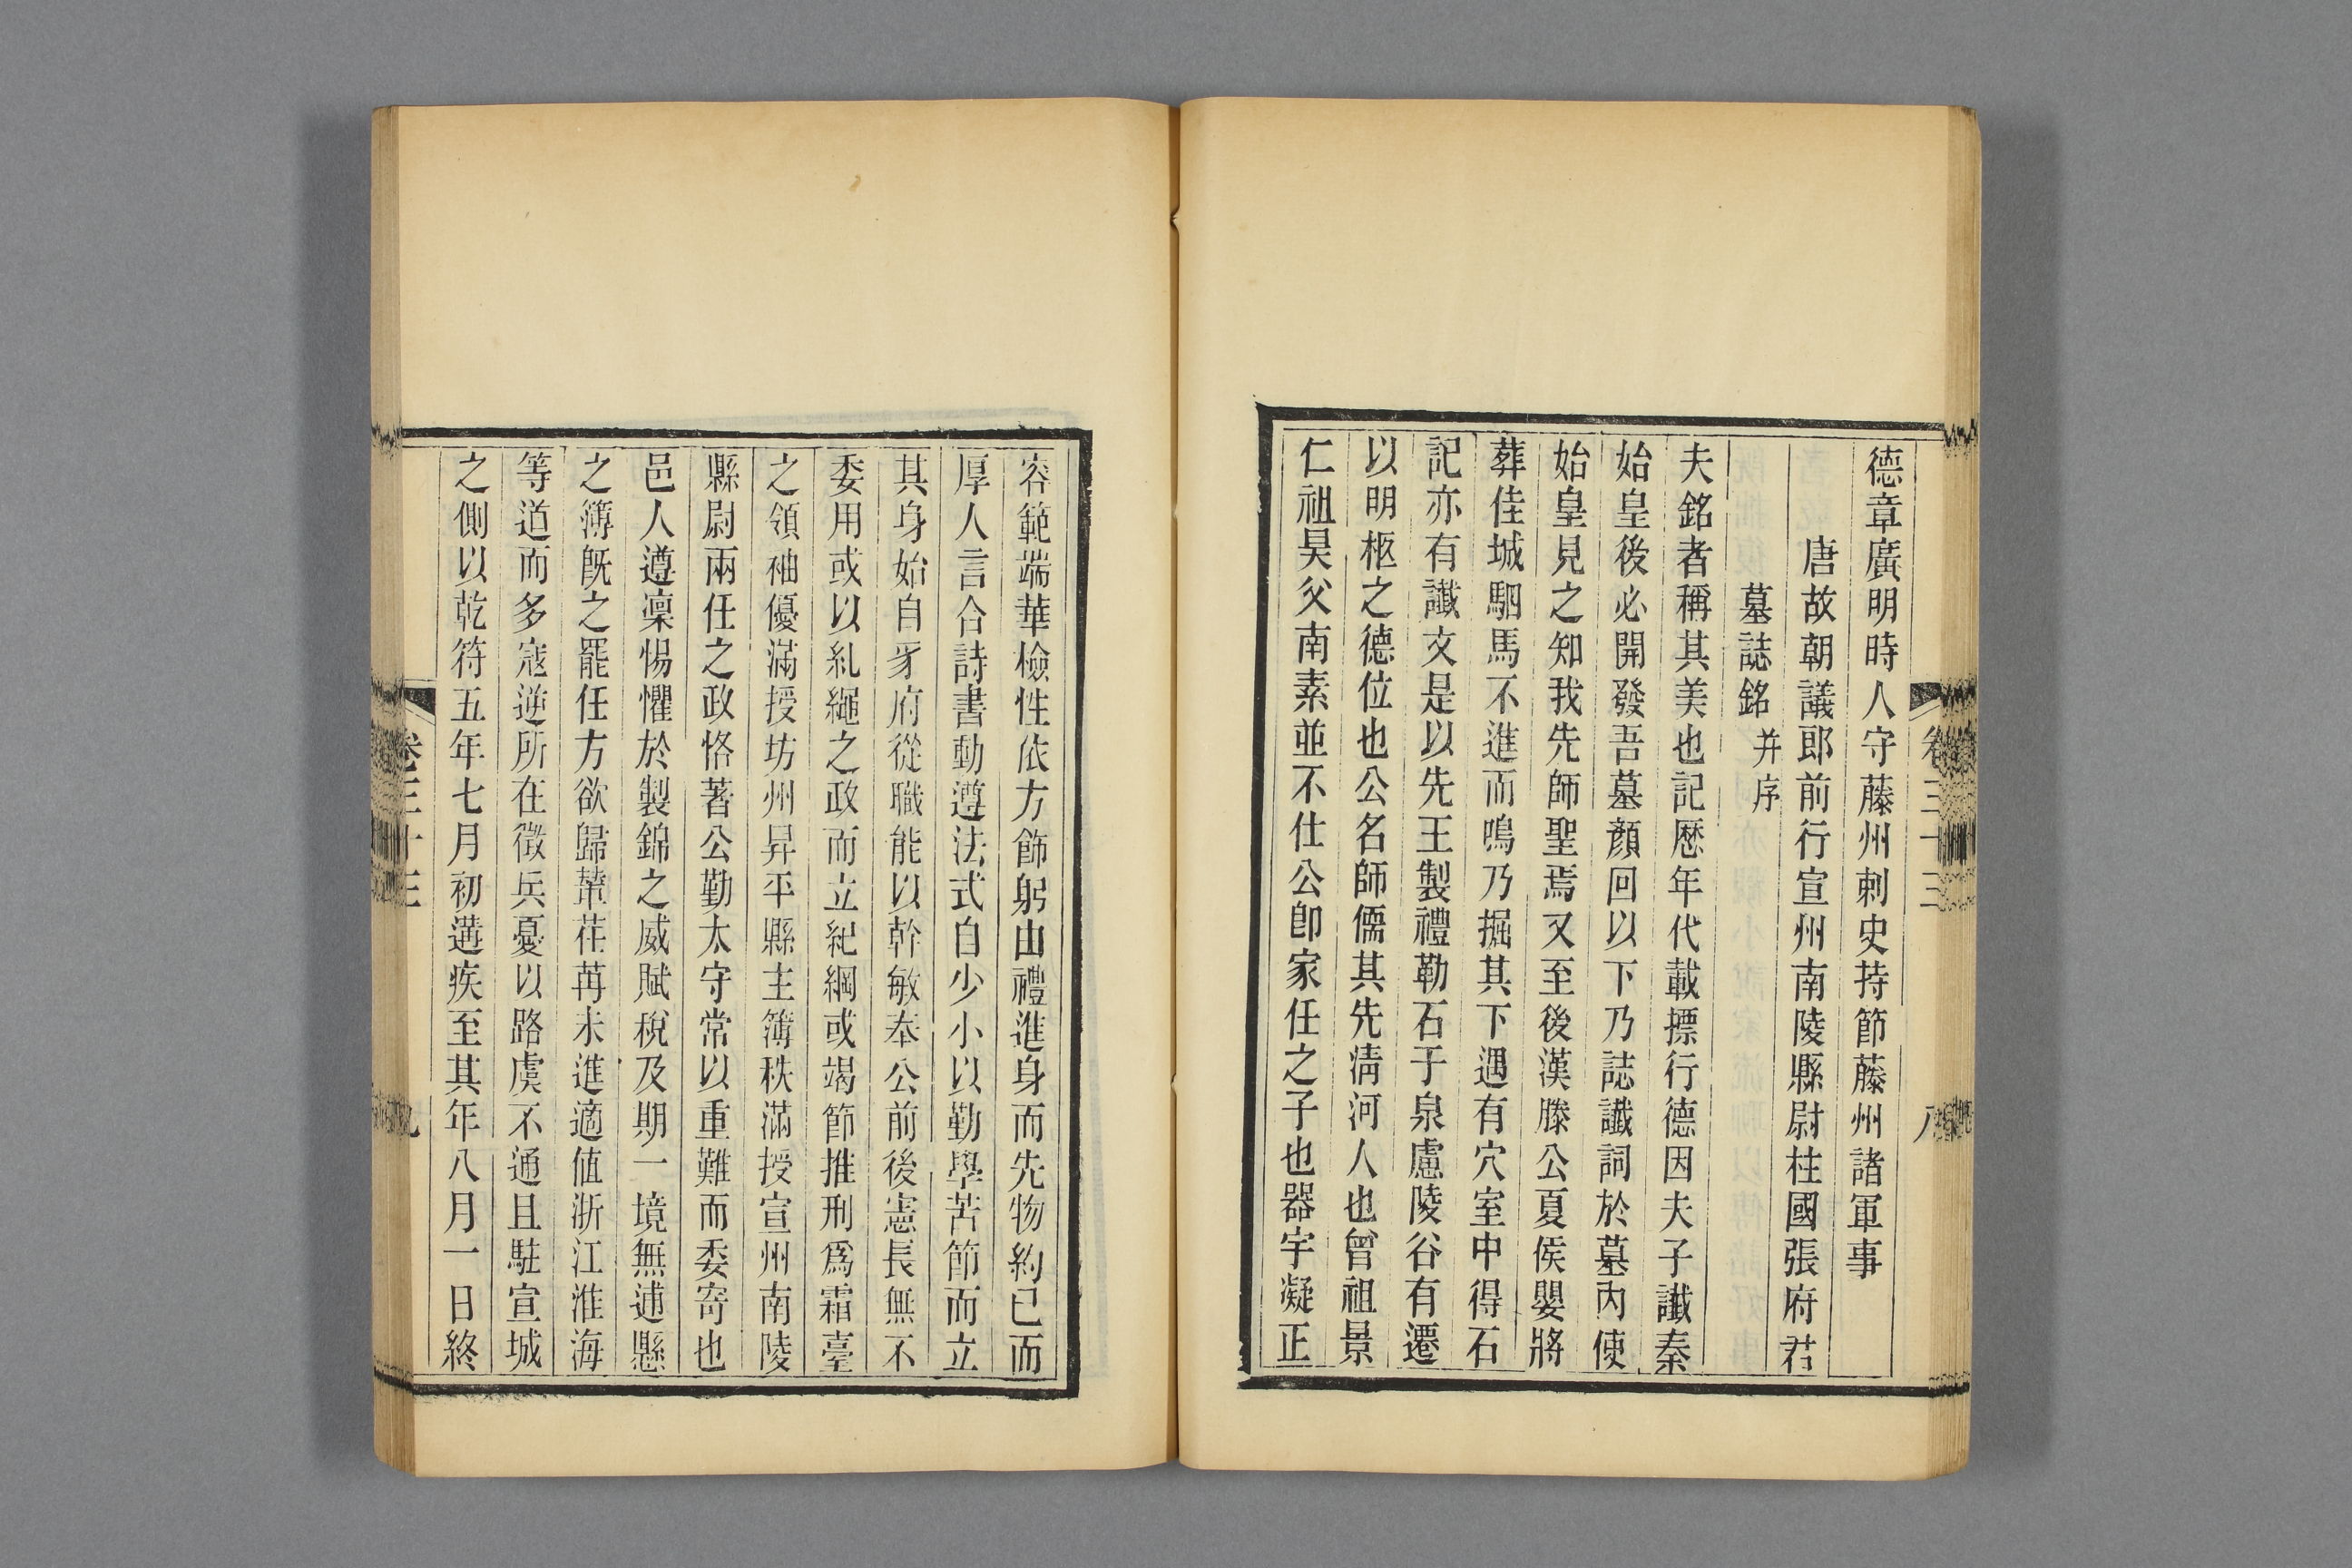 德章廣明時人守藤州刺史持節藤州諸軍事
唐故朝議郎前行宣州南陵縣尉柱國張府君
墓誌銘并序
夫銘者稱其美也記歷年代載摽行德因夫子讖秦
始皇後必開發吾墓顏回以下乃誌讖詞於墓內使
始皇見之知我先師聖焉又至後漢滕公夏侯嬰將
葬佳城駟馬不進而鳴乃掘其下遇有穴室中得石
記亦有讖文是以先王製禮勒石于泉慮陵谷有遷
以明柩之德位也公名師儒其先淸河人也曾祖景
仁祖昊父南素並不仕公卽家任之子也器宇凝正
容範端華檢性依方飾躬由禮進身而先物約己而
厚人言合詩書動遵法式自少小以勤學苦節而立
其身始自牙府從職能以幹敏奉公前後憲長無不
委用或以糺繩之政而立紀綱或竭節推刑爲霜臺
之領袖優滿授坊州昇平縣主簿秩滿授宣州南陵
縣尉兩任之政恪著公勤太守常以重難而委寄也
邑人遵凜惕懼於製錦之威賦稅及期一境無逋懸
之簿旣之罷任方欲歸輦荏苒未進適値浙江淮海
等道而多寇逆所在徵兵憂以路虞不通且駐宣城
之側以乾符五年七月初遘疾至其年八月一日終
卷三十三
八
卷三十三
九